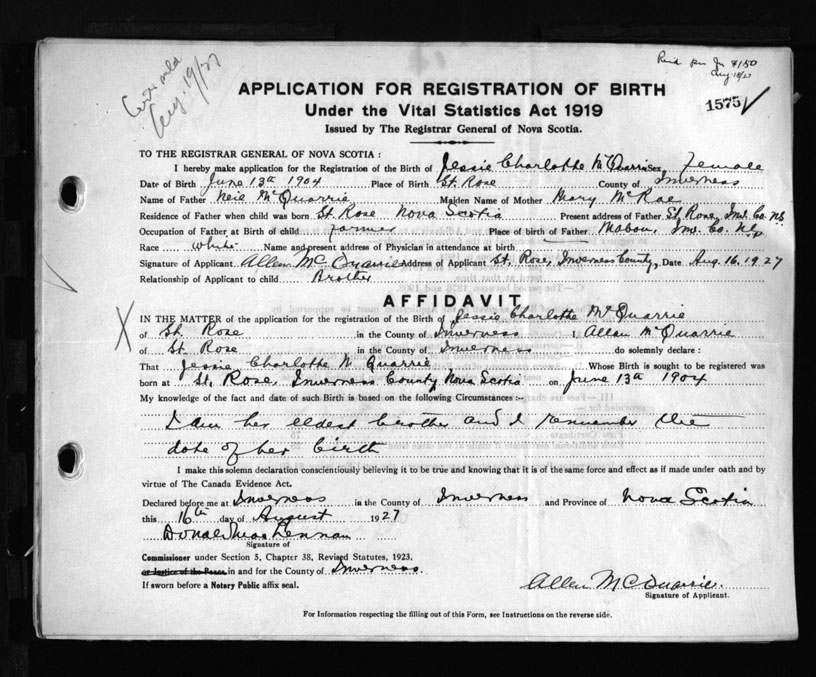 Aug 19/27
$1.50
Aug 18/27
APPLICATION FOR REGISTRATION OF BIRTH
Under the Vital Statistics Act 1919
1575
Issued by The Registrar General of Nova Scotia.
TO THE REGISTRAR GENERAL OF NOVA SCOTIA :
I hereby make application for the Registration of the Birth of Jessie Charlotte McQuarrie Sex Female
Date of Birth June 13th 1904 Place of Birth St. Rose County of Inverness
Name of Father Neil McQuarrie Maiden Name of Mother Mary McRae
Residence of Father when child was born St. Rose Nova Scotia Present address of Father St. Rose, Inv. Co. N.S.
Occupation of Father at Birth of child Farmer Place of birth of Father Mabou, Inv. Co. N.S.
Race White Name and present address of Physician in attendance at birth
Signature of Applicant Allan McQuarrie Address of Applicant St. Rose, Inverness County, Date Aug. 16, 1927
Relationship of Applicant to child Brother
AFFIDAVIT
IN THE MATTER of the application for the registration of the Birth of Jessie Charlotte McQuarrie
of St. Rose in the County of Inverness I Allan McQuarrie
of St. Rose in the County of Inverness do solemnly declare :
That Jessie Charlotte McQuarrie Whose Birth is sought to be registered was
born at St. Rose, Inverness County Nova Scotia on June 13th 1904
My knowledge of the fact and date of such Birth is based on the following Circumstances :-
I am her eldest brother and I remember the
date of her birth
I make this solemn declaration conscientiously believing it to be true and knowing that it is of the same force and effect as if made under oath and by
virtue of The Canada Evidence Act.
Declared before me at Inverness in the County of Inverness and Province of Nova Scotia
this 16th day of August 1927
Donald MacLennan
Signature of
Commissioner under Section 5, Chapter 38, Revised Statutes, 1923,
or Justice of the Peace in and for the County of Inverness.
If sworn before a Notary Public affix seal.
Allan McQuarrie
Signature of Applicant.
For Information respecting the filling out of this Form, see Instructions on the reverse side.